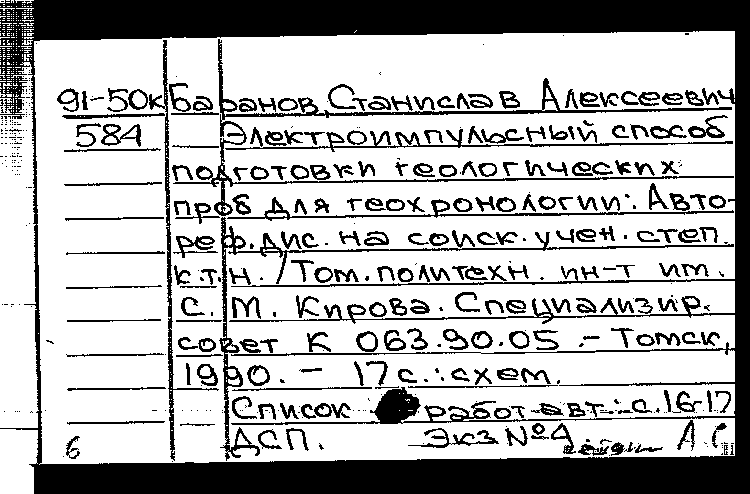 91-50к Баранов, Станислав Алексеевич
584 Электроимпульсный способ
подготовки геологических
проб для геохронологии: Авто-
реф. дис. на соиск. учен. степ.
к.т.н. / Том. политехн. ин-т им.
С. М. Кирова. Специализир.
совет К 063.90.05. - Томск,
1990. - 17 с.: схем.
Список работ авт.: с. 16-17
ДСП. Экз № 4
6